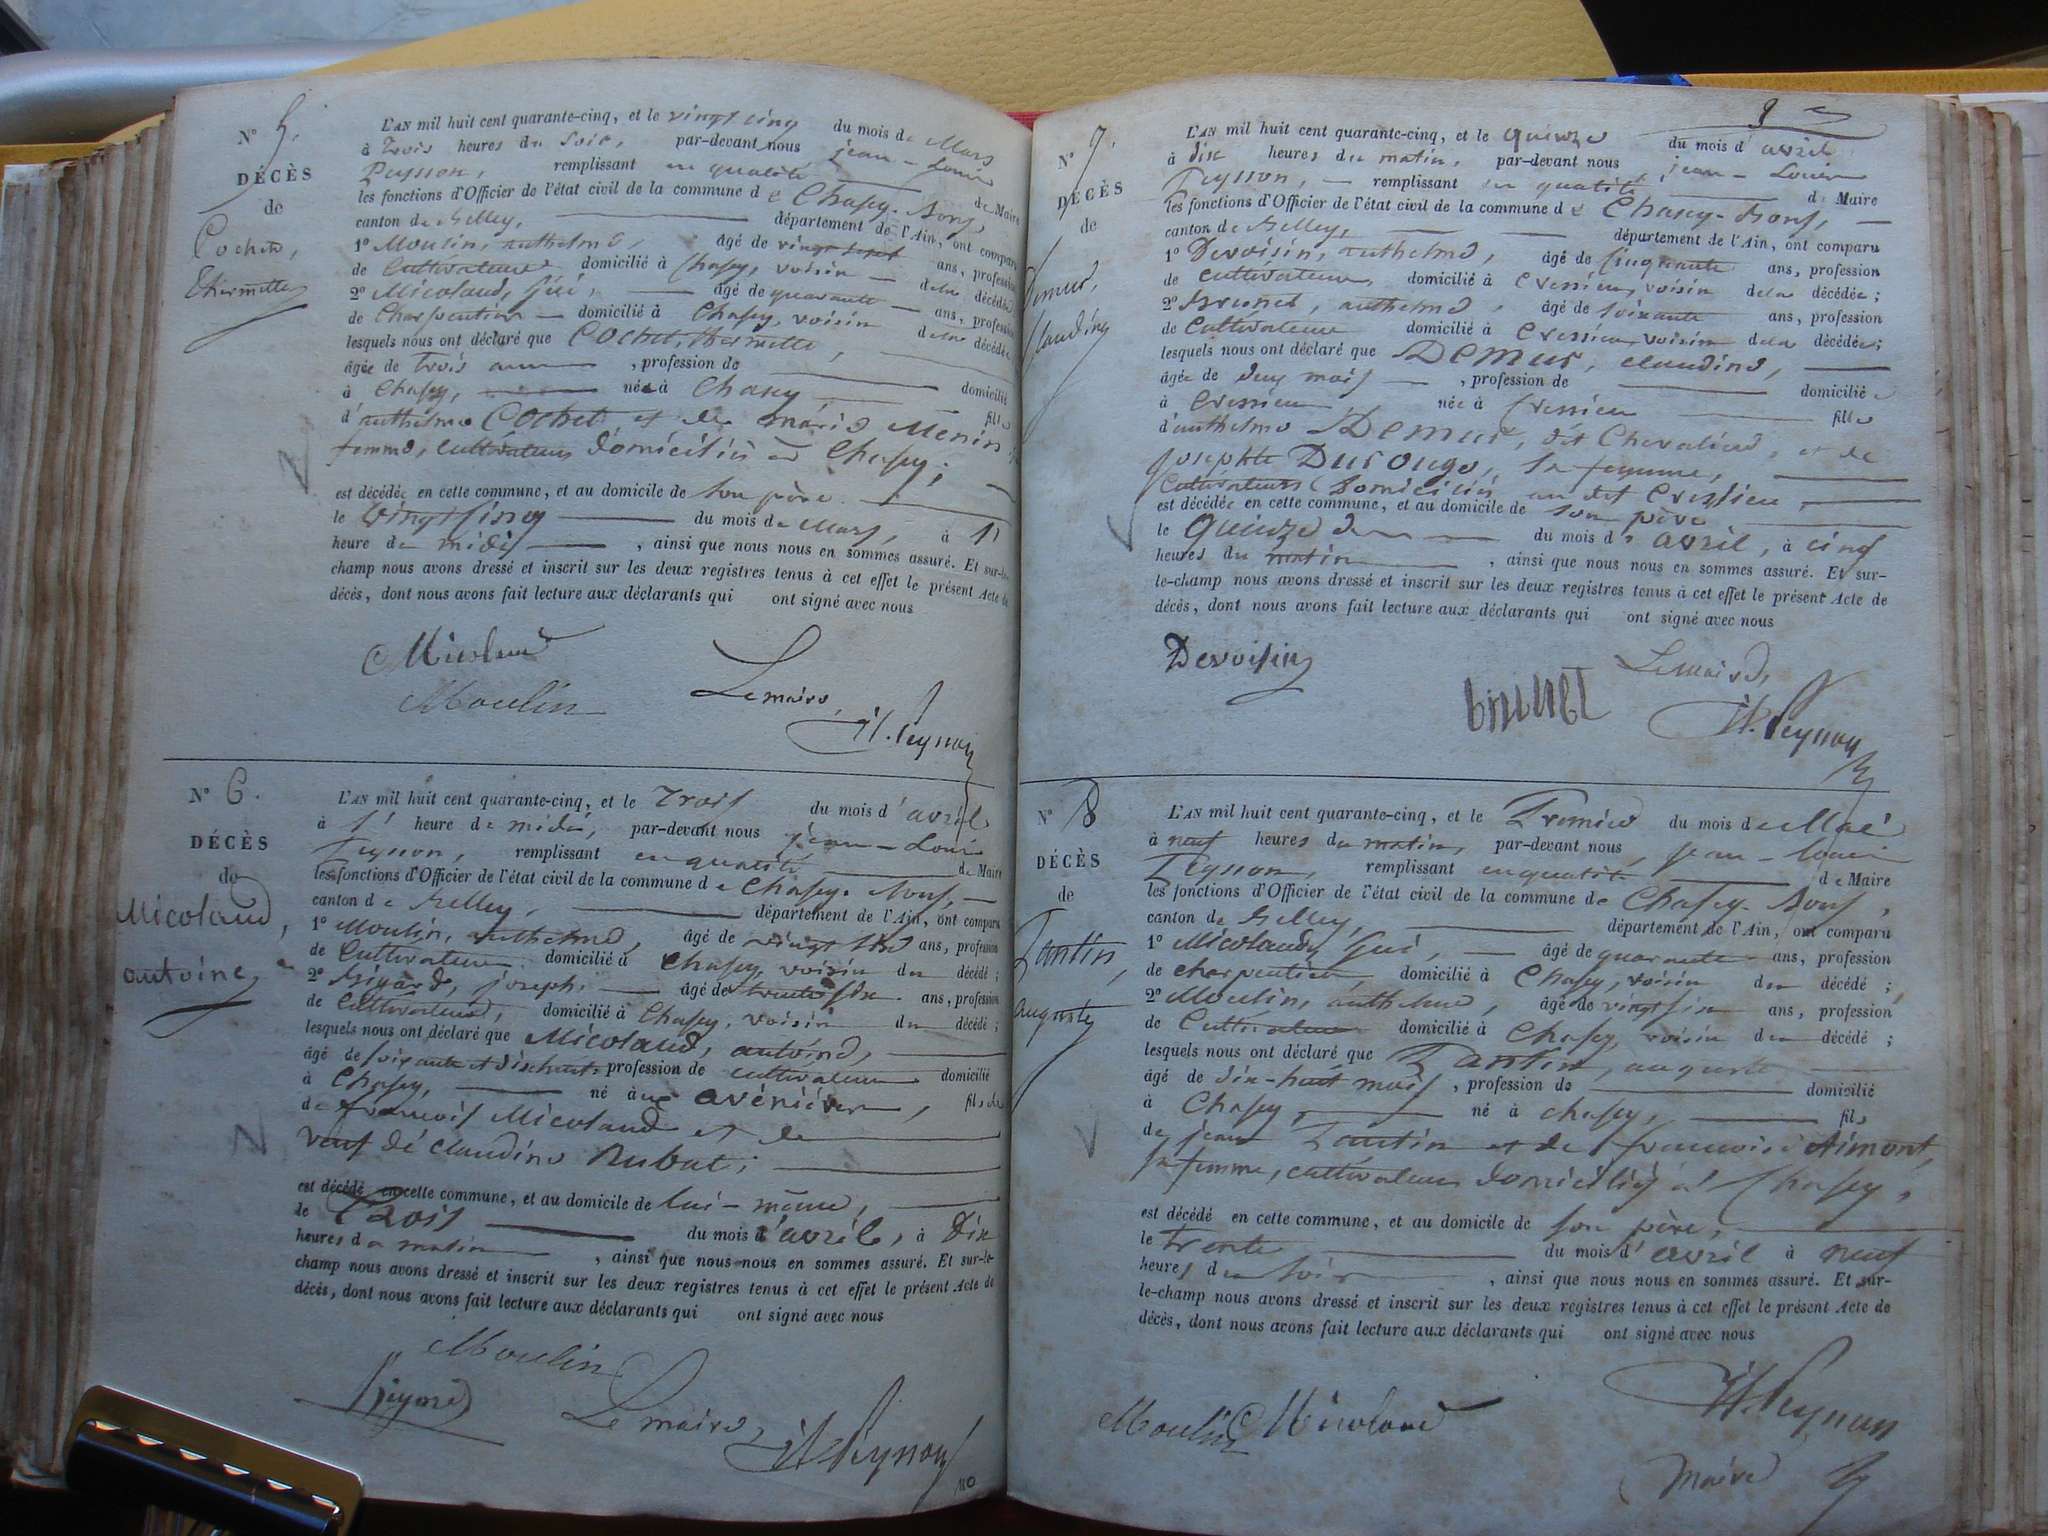 N° 5.
DÉCÈS
de
Cochet,
Thermette
L'AN mil huit cent quarante-cinq, et le vingt cinq du mois de Mars
à Trois heures du soir, par-devant nous jean-Louis
Peysson, remplissant en qualité de Maire
les fonctions d'Officier de l'état civil de la commune de Chasey-Bons,
canton de Belley, département de l'Ain, ont comparu
1° Moulin, anthelme, âgé de vingt ans, profession
de Cultivateur domicilié à Chasey, voisin de la décédée
2° Micolaud, Gui, âgé de quarante ans, profession
de Charpentier domicilié à Chasey, voisin de la décédée
lesquels nous ont déclaré que Cochet, thermette,
âgée de trois ans, profession de domicilié
à Chasey, née à Chasey fille
d'anthelme Cochet et de marie Menin
femme, cultivateurs domiciliés à Chasey;
est décédée en cette commune, et au domicile de son père
le vingt cinq du mois de Mars, à
heure de midi, ainsi que nous nous en sommes assuré. Et sur-le-
champ nous avons dressé et inscrit sur les deux registres tenus à cet effet le présent Acte de
décès, dont nous avons fait lecture aux déclarants qui ont signé avec nous
Micolaud
Moulin
Le maire,
N° 6.
DÉCÈS
de
Micolaud,
antoine
L'AN mil huit cent quarante-cinq, et le Trois du mois d'avril
à heure de midi, par-devant nous jean-Louis
Peysson, remplissant en qualité de Maire
les fonctions d'Officier de l'état civil de la commune de Chasey-Bons,
canton de Belley, département de l'Ain, ont comparu
1° Moulin, anthelme, âgé de vingt six ans, profession
de Cultivateur domicilié à Chasey, voisin du décédé;
2° joseph, âgé de trente six ans, profession
de Cultivateur, domicilié à Chasey, voisin du décédé;
lesquels nous ont déclaré que Micolaud, antoine,
âgé de soixante et dix huit profession de cultivateur domicilié
à Chasey, né à fils de
de francois Micolaud et de
veuf de claudine Rubat;
est décédé en cette commune, et au domicile de lui-même,
le Trois du mois d'avril, à Dix
heures du matin, ainsi que nous nous en sommes assuré. Et sur-le-
champ nous avons dressé et inscrit sur les deux registres tenus à cet effet le présent Acte de
décès, dont nous avons fait lecture aux déclarants qui ont signé avec nous
Moulin
Le maire,
N° 7.
DÉCÈS
de
Demur,
claudine
L'AN mil huit cent quarante-cinq, et le quinze du mois d'avril
à dix heures du matin, par-devant nous jean-Louis
Peysson, remplissant en qualité de Maire
les fonctions d'Officier de l'état civil de la commune de Chasey-Bons,
canton de Belley, département de l'Ain, ont comparu
1° Devoisin, anthelme, âgé de cinquante ans, profession
de cultivateur domicilié à Cressieu, voisin de la décédée;
2° Brunet, anthelme, âgé de soixante ans, profession
de Cultivateur domicilié à Cressieu, voisin de la décédée;
lesquels nous ont déclaré que Demur, claudine,
âgée de deux mois, profession de domicilié
à Cressieu née à Cressieu fille
d'anthelme Demur, dit Chevalier, et de
josephte, sa femme,
Cultivateurs domiciliés au dit Cressieu
est décédée en cette commune, et au domicile de son père
le quinze du mois d'avril, à cinq
heures du matin, ainsi que nous nous en sommes assuré. Et sur-
le-champ nous avons dressé et inscrit sur les deux registres tenus à cet effet le présent Acte de
décès, dont nous avons fait lecture aux déclarants qui ont signé avec nous
Devoisin
Le maire,
brunet
N° 8
DÉCÈS
de
Tantin,
auguste
L'AN mil huit cent quarante-cinq, et le Premier du mois de Mai
à neuf heures du matin, par-devant nous, jean-louis
Peysson, remplissant en qualité de Maire
les fonctions d'Officier de l'état civil de la commune de Chasey-Bons,
canton de Belley, département de l'Ain, ont comparu
1° Micolaud, Gui, âgé de quarante ans, profession
de charpentier domicilié à Chasey, voisin du décédé;
2° Moulin, anthelme, âgé de vingt six ans, profession
de Cultivateur domicilié à Chasey, voisin du décédé;
lesquels nous ont déclaré que Tantin, auguste
âgé de dix-huit mois, profession de domicilié
à Chasey, né à chasey, fils
de jean Tantin et de francoise Aimont,
sa femme, cultivateurs domiciliés à Chasey,
est décédé en cette commune, et au domicile de son père,
le trente du mois d'avril à neuf
heures du soir, ainsi que nous nous en sommes assuré. Et sur-
le-champ nous avons dressé et inscrit sur les deux registres tenus à cet effet le présent Acte de
décès, dont nous avons fait lecture aux déclarants qui ont signé avec nous
Moulin Micolaud
maire